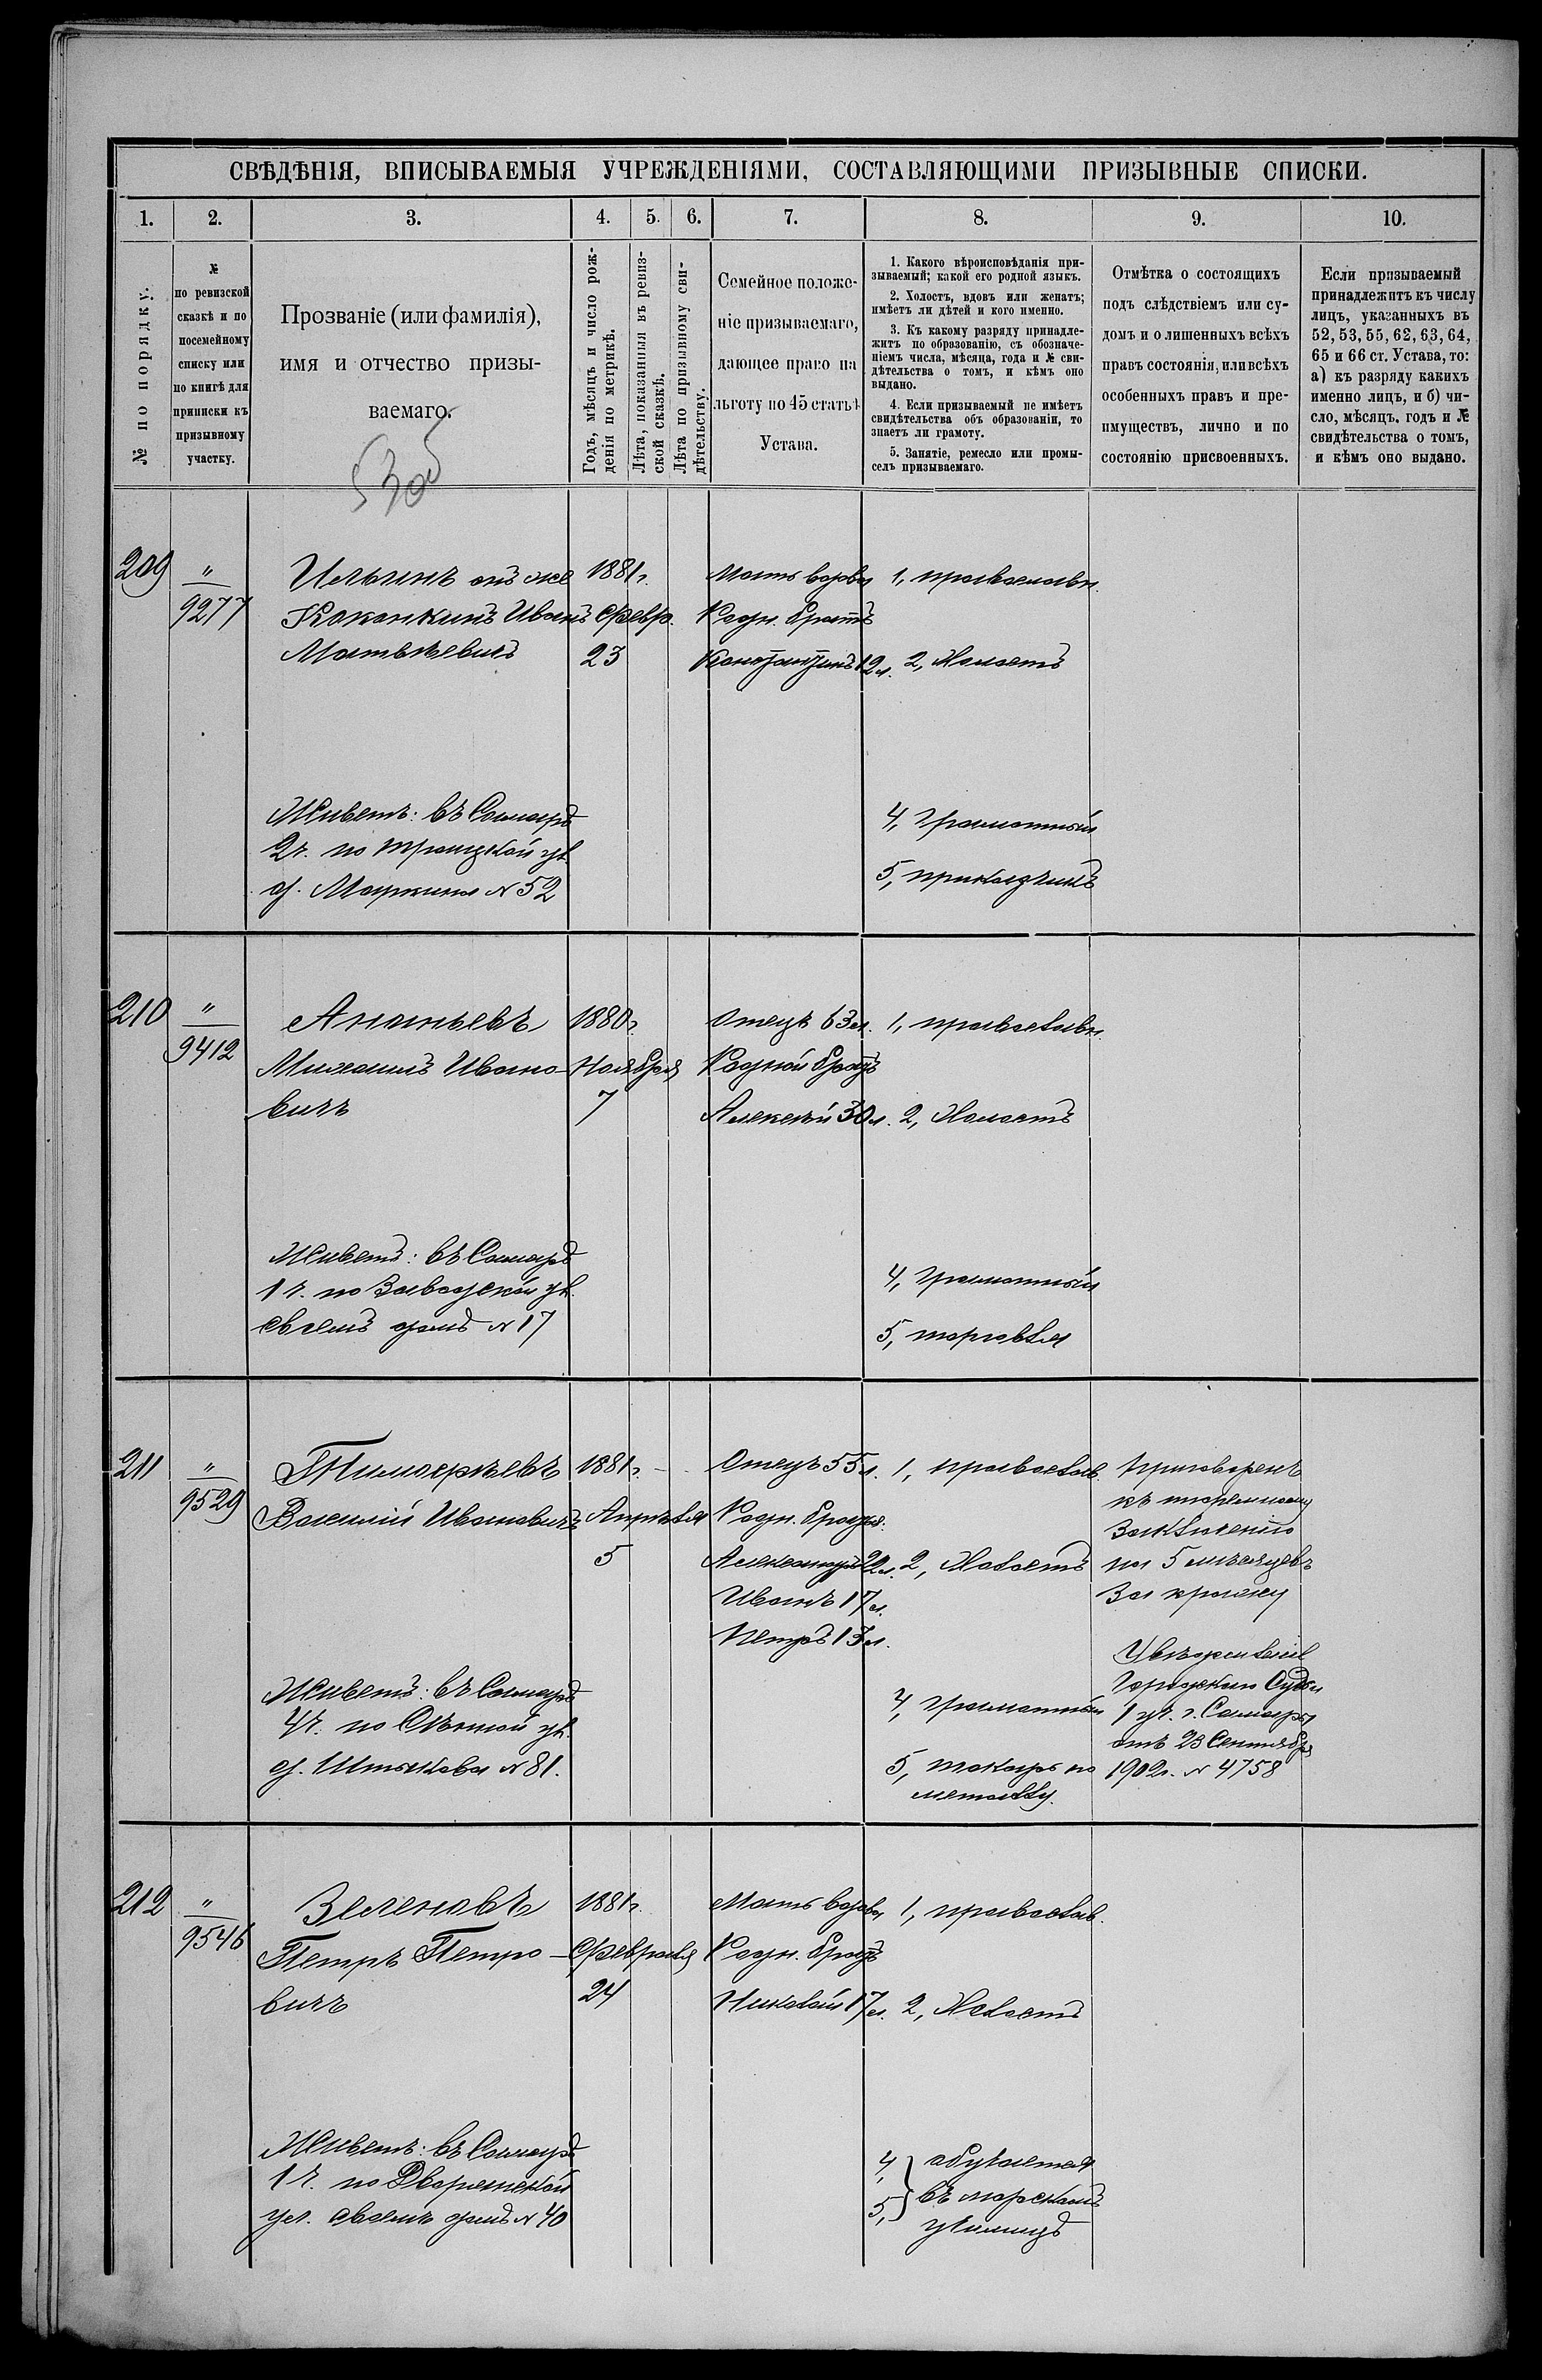 СВѢДѢНІЯ, ВПИСЫВАЕМЫЯ УЧРЕЖДЕНІЯМИ, СОСТАВЛЯЮЩИМИ ПРИЗЫВНЫЕ СПИСКИ.
1. 2. 3. 4. 5. 6. 7. 8. 9. 10.
№ по порядку.
№
по ревизской
сказкѣ и по
посемейному
списку или
по книгѣ для
приписки къ
призывному
участку.
Прозваніе (или фамилія),
имя и отчество призы-
ваемаго.
Годъ, мѣсяцъ и число рож-
денія по метрикѣ.
Лѣта, показанныя въ ревиз-
ской сказкѣ.
Лѣта по призывному сви-
дѣтельству.
Семейное положе-
ніе призываемаго,
дающее право на
льготу по 45 статьѣ
Устава.
1. Какого вѣроисповѣданія при-
зываемый; какой его родной языкъ.
2. Холостъ, вдовъ или женатъ;
имѣетъ ли дѣтей и кого именно.
3. Къ какому разряду принадле-
житъ по образованію, съ обозначе-
ніемъ числа, мѣсяца, года и № сви-
дѣтельства о томъ, и кѣмъ оно
выдано.
4. Если призываемый не имѣетъ
свидѣтельства объ образованіи, то
знаетъ ли грамоту.
5. Занятіе, ремесло или промы-
селъ призываемаго.
Отмѣтка о состоящихъ
подъ слѣдствіемъ или су-
домъ и о лишенныхъ всѣхъ
правъ состоянія, или всѣхъ
особенныхъ правъ и пре-
имуществъ, лично и по
состоянію присвоенныхъ.
Если призываемый
принадлежитъ къ числу
лицъ, указанныхъ въ
52, 53, 55, 62, 63, 64,
65 и 66 ст. Устава, то:
а) къ разряду какихъ
именно лицъ, и б) чи-
сло, мѣсяцъ, годъ и №
свидѣтельства о томъ,
и кѣмъ оно выдано.
209
"
9277
Ильинъ онъ же
Коканкинъ Иванъ
Матвѣевичъ
Живетъ: въ Самарѣ
2 ч. по Троицкой ул.
д. Маркина № 52
1881 г.
Февр.
23
Мать вдова
Родн. братъ
Константинъ 12 л.
1, православн.
2, Холостъ
4, грамотный
5, приказчикъ
210
"
9412
Ананьевъ
Михаилъ Ивано-
вичъ
Живетъ: въ Самарѣ
1 ч. по Заводской ул.
своемъ домѣ № 17
1880 г.
Ноября
7
Отецъ 63 л.
Родной братъ
Алексѣй 30 л.
1, православн.
2, Холостъ
4, грамотный
5, торговля
211
"
9529
Тимофѣевъ
Василій Ивановичъ
Живетъ: въ Самарѣ
4 ч. по Сѣнной ул.
д. Штыкова № 81.
1881 г.
Апрѣля
5
Отецъ 55 л.
Родн. братья:
Александръ 22 л.
Иванъ 17 л.
Петръ 13 л.
1, православ.
2, Холостъ
4, грамотный
5, токарь по
металлу.
Приговоренъ
къ тюремному
заключенію
на 5 мѣсяцевъ
за кражу
Увѣдомленіе
Городского Судьи
1 уч. г. Самары
отъ 23 Сентября
1902 г. № 4758
212
"
9546
Зеленовъ
Петръ Петро-
вичъ
Живетъ: въ Самарѣ
1 ч. по Дворянской
ул. своемъ домѣ № 40
1881 г.
Февраля
24
Мать вдова
Родн. братъ
Николай 17 л.
1, православ.
2, Холостъ
4,
5,
обучается
въ морскомъ
училищѣ